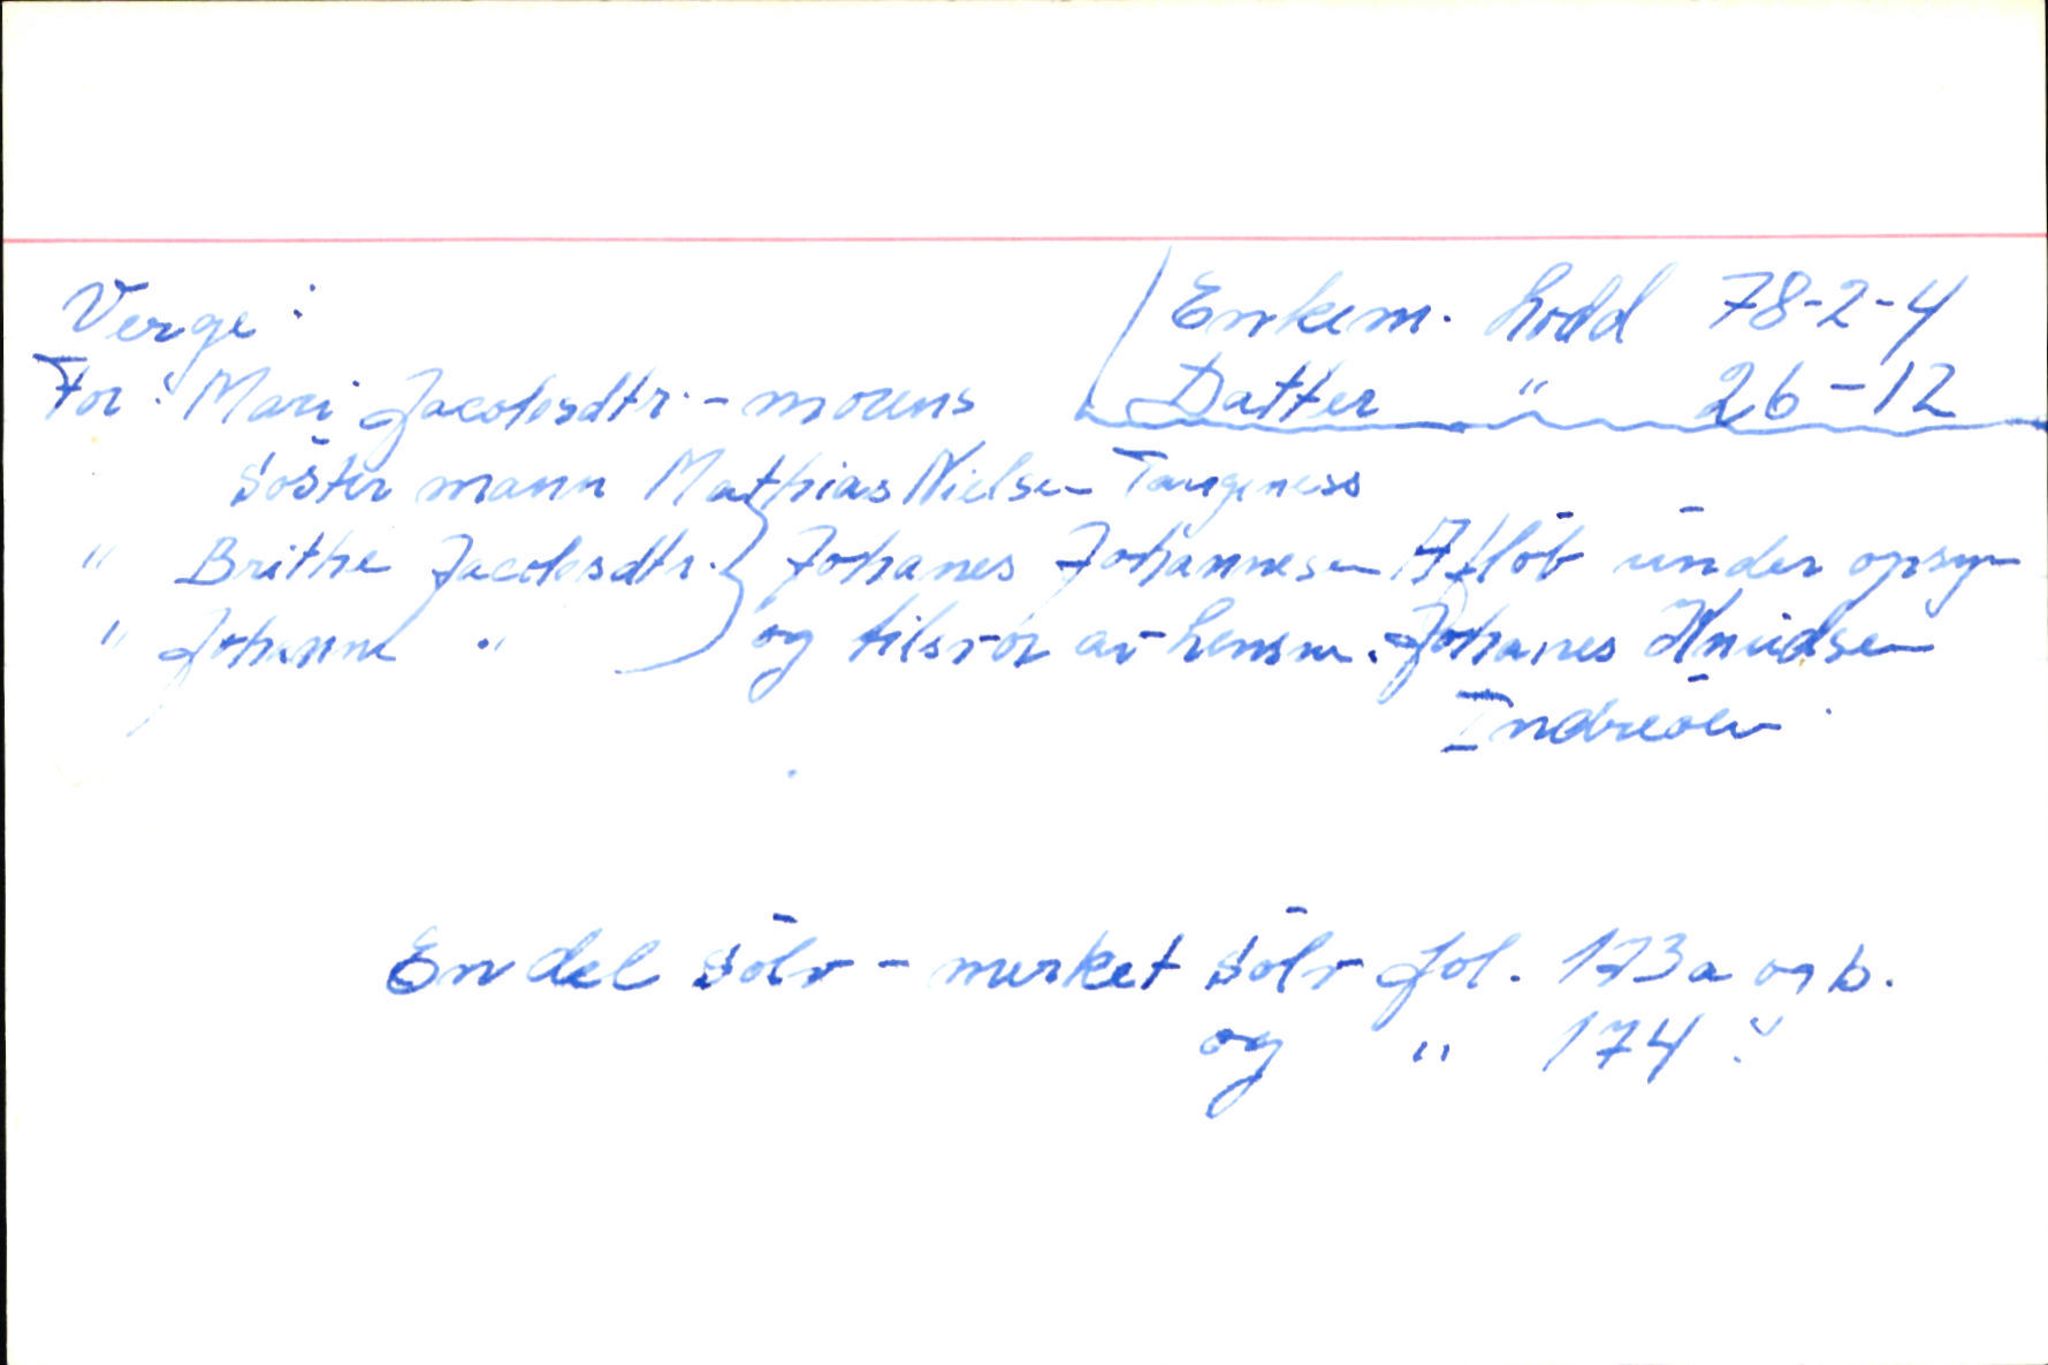 Verge:
Enkem. Lodd 78-2-4
Datter " 26-12
For: Mari Jacobsdtr. - morens
söster mann Mathias Nielsen Tangeness
" Brithe Jacobsdtr. } Johanes Johannesen Afløb under opsyn
" Johanne " og tilsvar av lensm. Johanes Knudsen
Indreöen
En del sölv - merket sölv fol. 173a og b.
og " 174